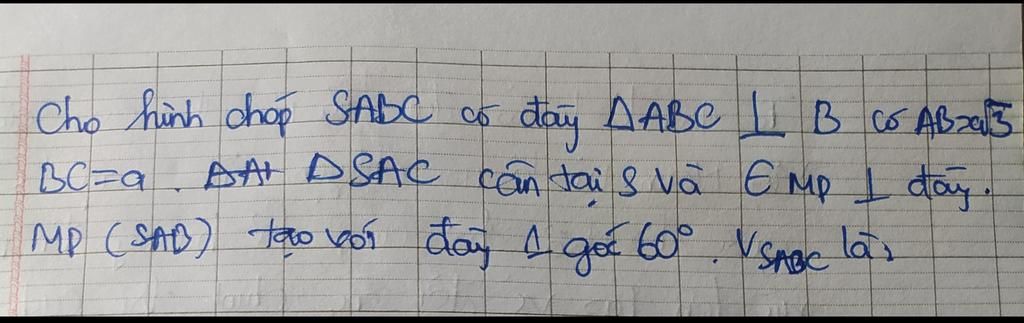 Cho hình chóp SABC có đáy ΔABC ⊥ B có AB=a√3
BC=a. ΔSAC cân tại S và ∈ MP ⊥ đáy.
MP (SAB) tạo với đáy 1 góc 60°. V_SABC là?